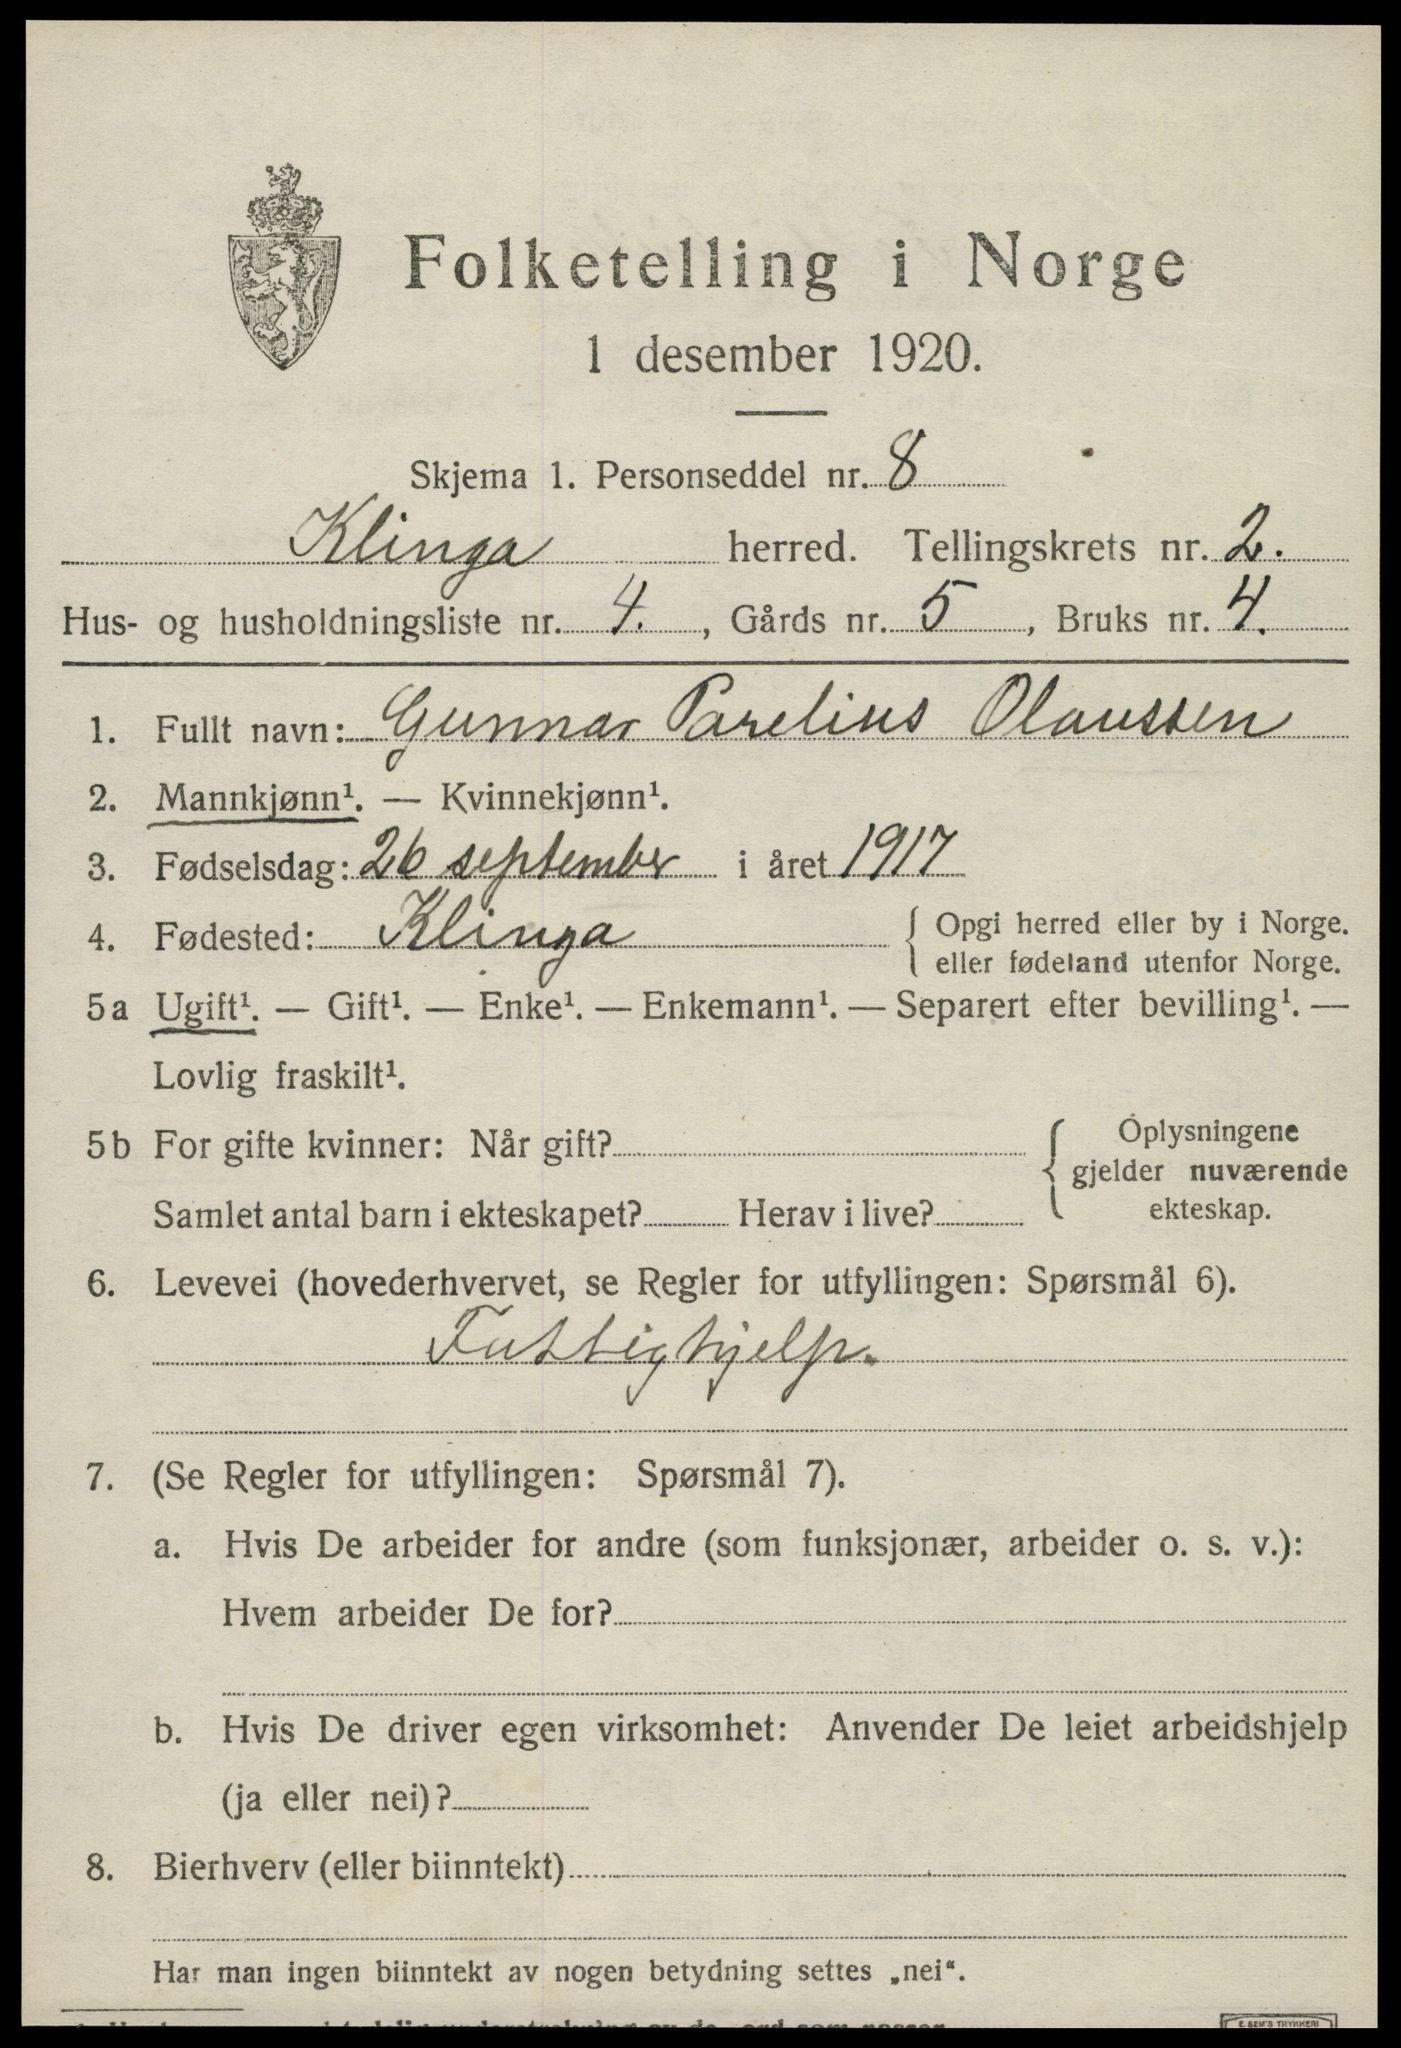 Folketelling i Norge
1 desember 1920.
Skjema 1. Personseddel nr. 8
Klinga herred. Tellingskrets nr. 2.
Hus- og husholdningsliste nr. 4. , Gårds nr. 5 , Bruks nr. 4.
1. Fullt navn: Gunnar Parelius Olaussen
2. Mannkjønn¹. — Kvinnekjønn¹.
3. Fødselsdag: 26 september i året 1917
4. Fødested: Klinga { Opgi herred eller by i Norge.
eller fødeland utenfor Norge.
5a Ugift¹. — Gift¹. — Enke¹. — Enkemann¹. — Separert efter bevilling¹. —
Lovlig fraskilt¹.
5b For gifte kvinner: Når gift? { Oplysningene
gjelder nuværende
Samlet antal barn i ekteskapet? Herav i live? ekteskap.
6. Levevei (hovederhvervet, se Regler for utfyllingen: Spørsmål 6).
Fattighjelp.
7. (Se Regler for utfyllingen: Spørsmål 7).
a. Hvis De arbeider for andre (som funksjonær, arbeider o. s. v.):
Hvem arbeider De for?
b. Hvis De driver egen virksomhet: Anvender De leiet arbeidshjelp
(ja eller nei)?
8. Bierhverv (eller biinntekt)
Har man ingen biinntekt av nogen betydning settes „nei“.
E. SEM'S TRYKKERI